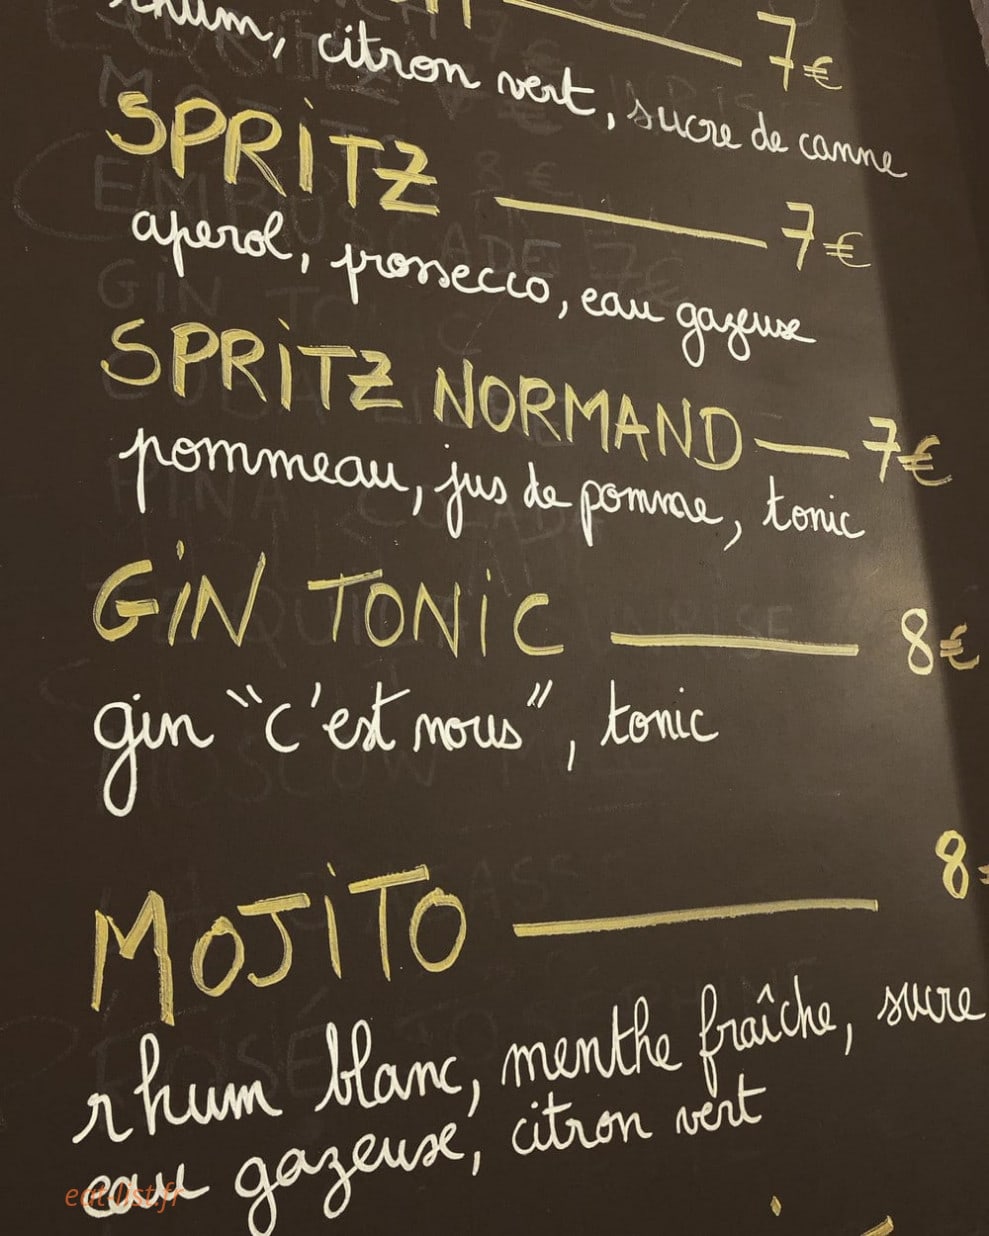 7€
rhum, citron vert, sucre de canne
SPRITZ 7€
aperol, prossecco, eau gazeuse
SPRITZ NORMAND 7€
pommeau, jus de pomme, tonic
GIN TONIC 8€
gin "c'est nous", tonic
MOJITO 8
rhum blanc, menthe fraîche, sucre
eau gazeuse, citron vert
eat-list.fr